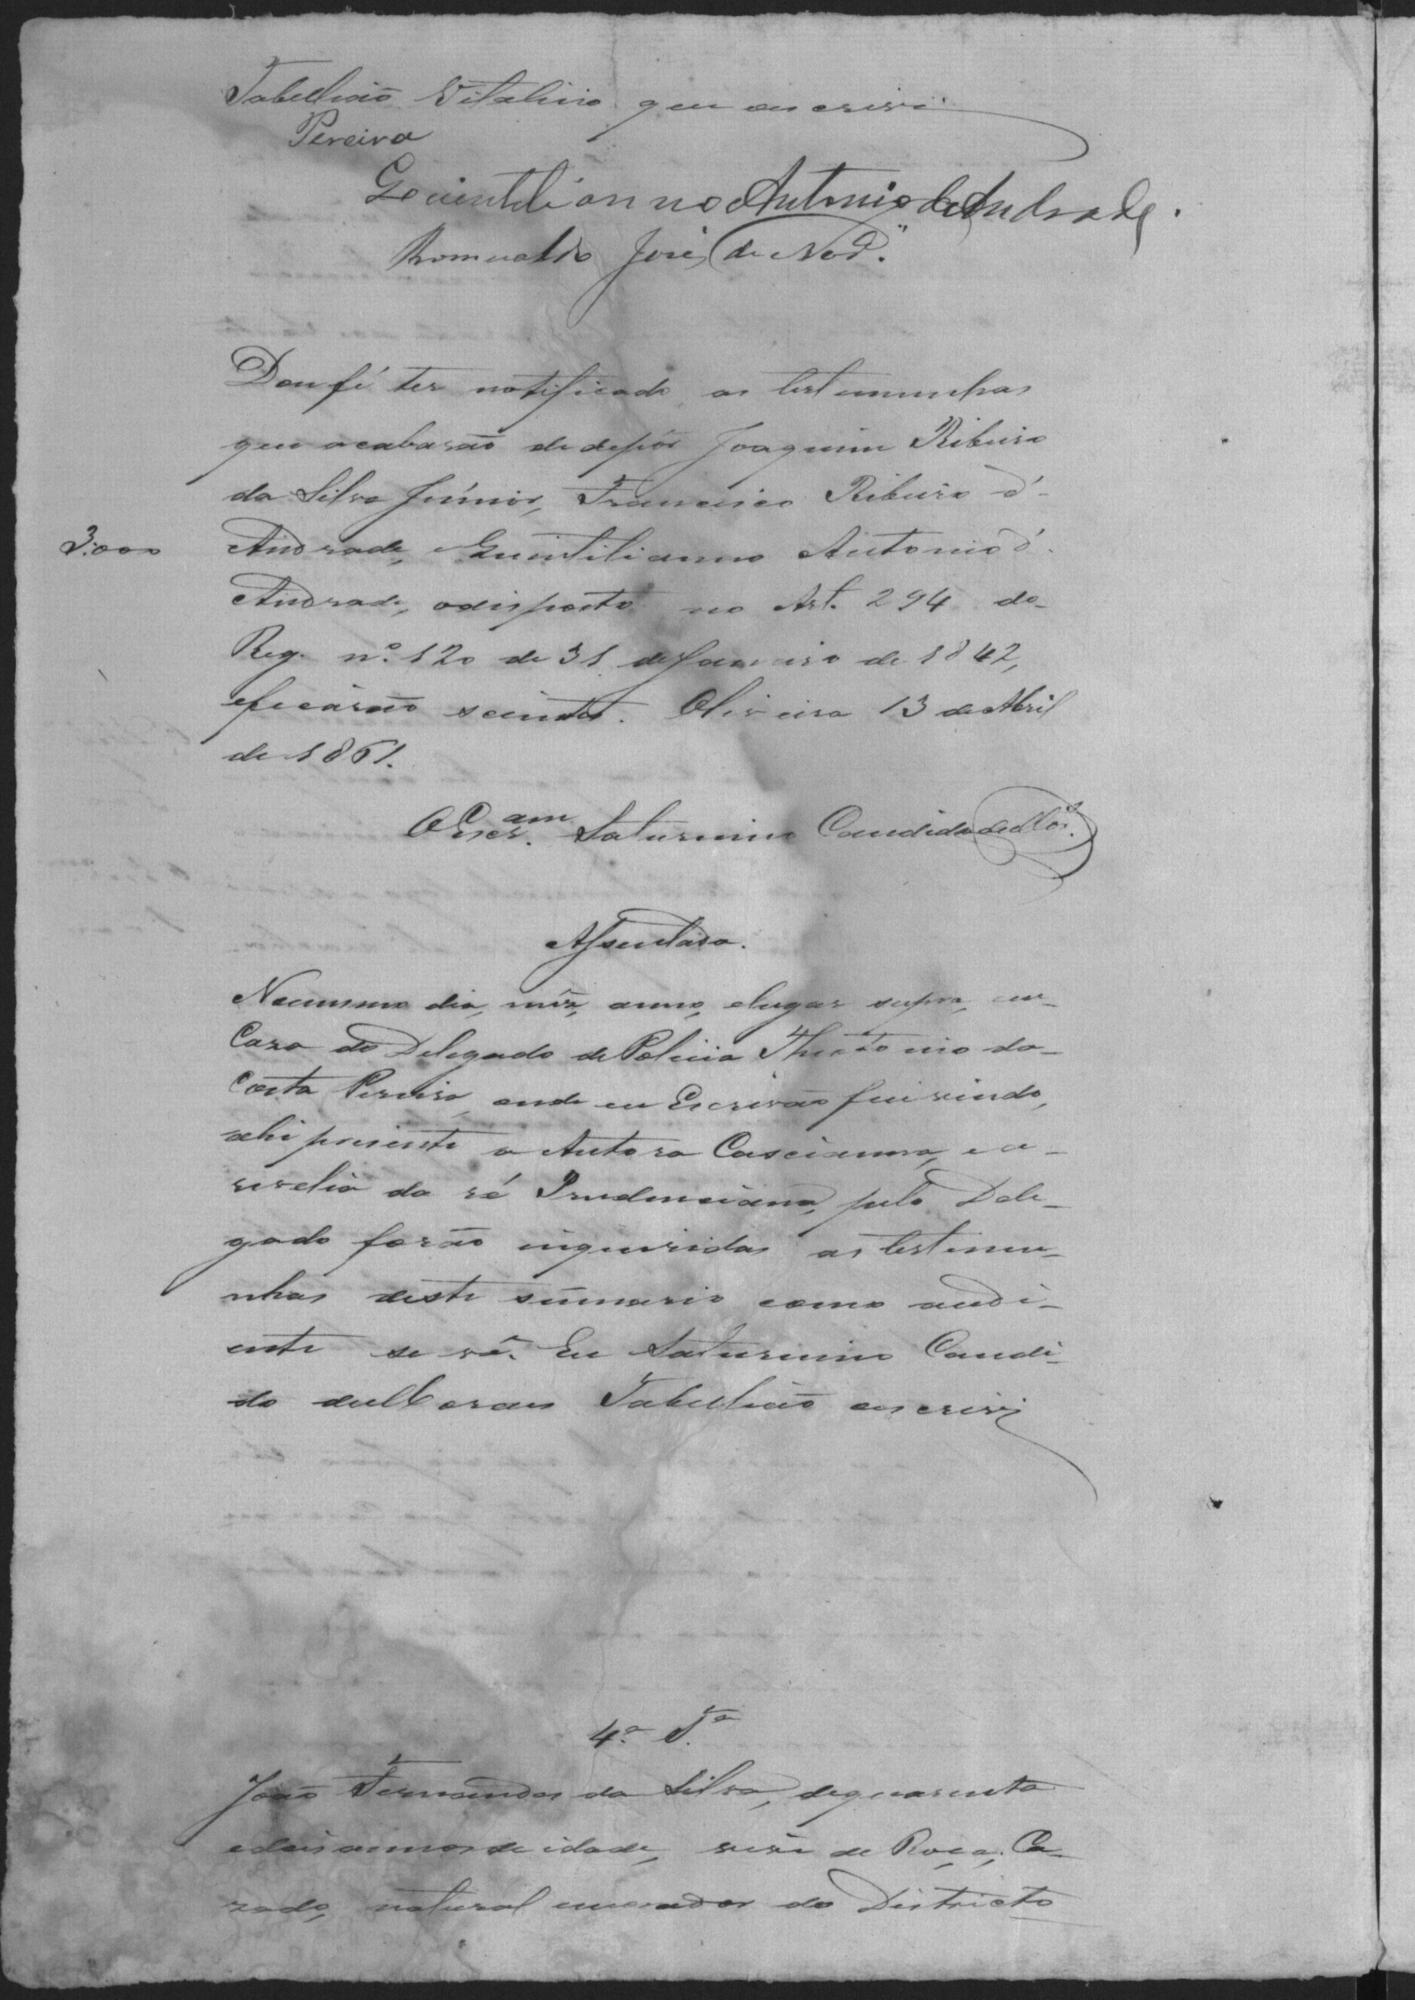 Tabellião Vitalicio que escrevi
Pereira
Gecintilianno Antonio de Andrade.
Romualdo José de
Dou fé ter notificado as testemunhas
que acabarão de depôr Joaquim Ribeiro
da Silva Júnior, Francisco Ribeiro d'-
3.000
Andrade, e Quintilianno Antonio d'
Andrade, odisposto no Art. 294 do
Reg. nº. 120 de 31 de Janeiro de 1842,
eficárão scientes. Oliveira 13 de Abril
de 1861.
O Escr.am Saturnino Candido de
Assentada.
No mesmo dia, mêz, anno, elugar supra, em
Caza do Delegado de Policia Theotonio da
Costa Pereira, onde eu Escrivão fui vindo,
ahi presente a Autora Casciamna, e a
revelia da ré Prudenciana, pelo Dele-
gado forão inqueridas as testemu-
nhas deste súmmario como audi-
ente se vê. Eu Saturnino Candi-
do de Moraes Tabellião escrevi
4.ª T.ª
João Fernandes da Silva, dequarenta
edois annos de idade, vive de Roça, Ca-
zado, natural emorador do Districto